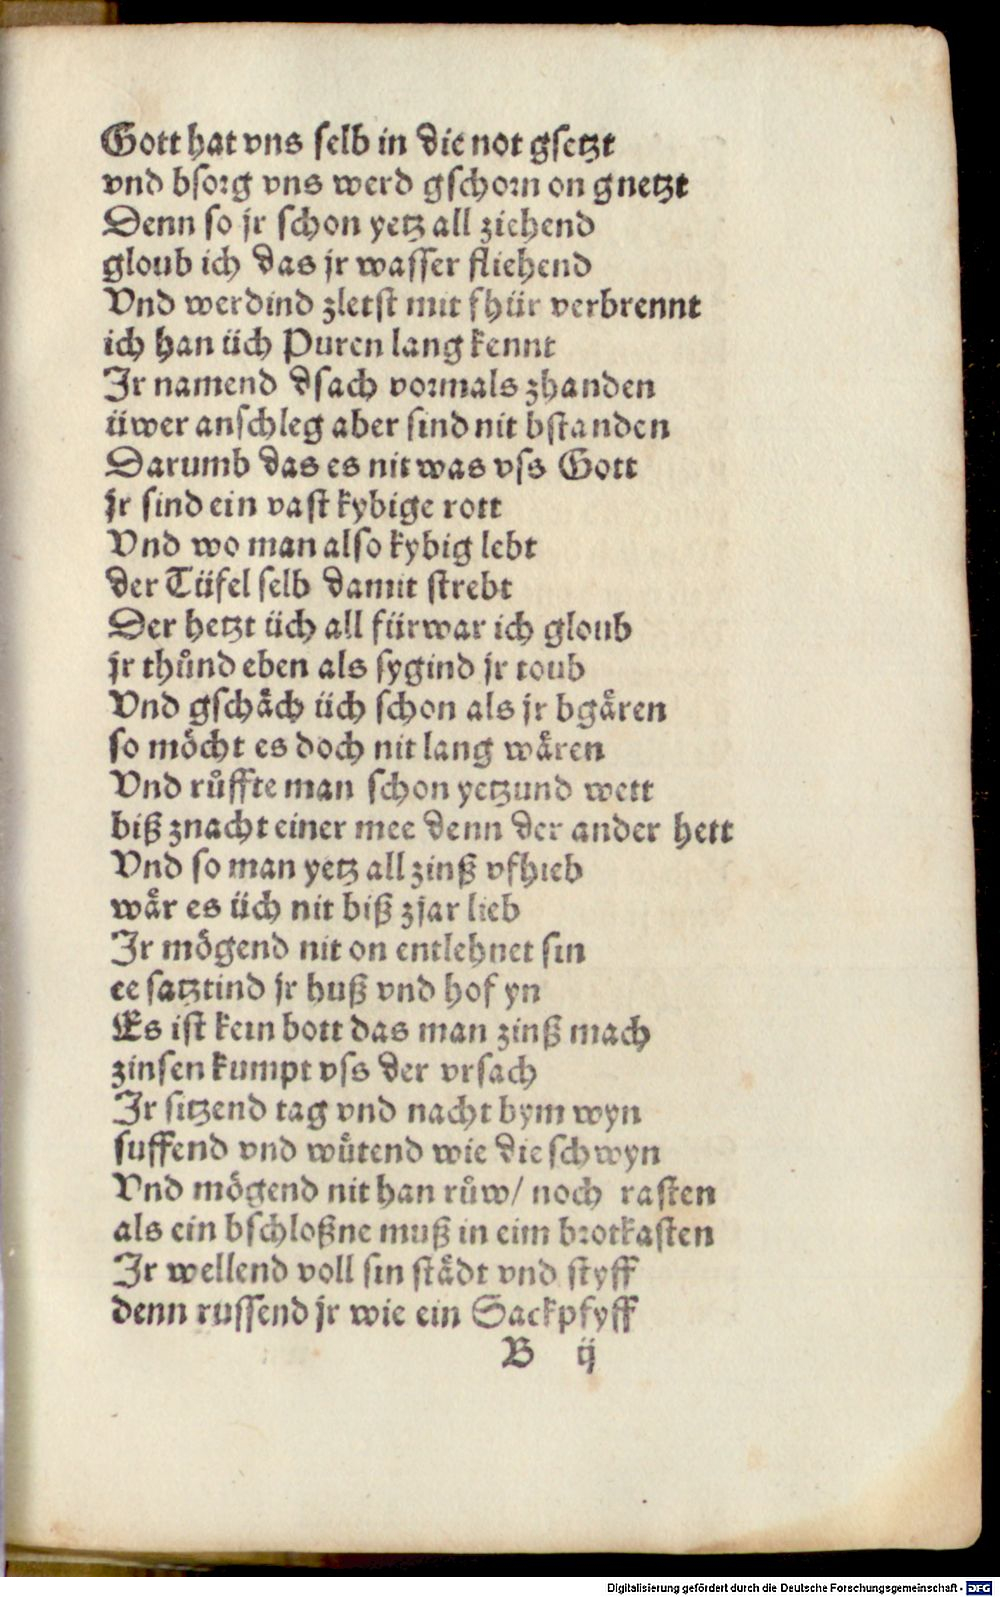 Gott hat vns selb in die not gsetzt
vnd bsorg vns werd gschorn on gnetzt
Denn so jr schon yetz all ziehend
gloub ich das jr wasser fliehend
Vnd werdind zletst mit fhür verbrennt
ich han üch Puren lang kennt
Jr namend dsach vormals zhanden
üwer anschleg aber sind nit bstanden
Darumb das es nit was vss Gott
jr sind ein vast kybige rott
Vnd wo man also kybig lebt
der Tüfel selb damit strebt
Der hetzt üch all fürwar ich gloub
jr thůnd eben als sygind jr toub
Vnd gschåch üch schon als jr bgåren
so möcht es doch nit lang wåren
Vnd růffte man schon yetzund wett
biß znacht einer mee denn der ander hett
Vnd so man yetz all zinß vfhieb
wår es üch nit biß zjar lieb
Jr mögend nit on entlehnet sin
ee satztind jr huß vnd hof yn
Es ist kein bott das man zinß mach
zinsen kumpt vss der vrsach
Jr sitzend tag vnd nacht bym wyn
suffend vnd wütend wie die schwyn
Vnd mögend nit han růw/ noch rasten
als ein bschloßne muß in eim brotkasten
Jr wellend voll sin städt vnd styff
denn russend jr wie ein Sackpfyff
B ij
Digitalisierung gefördert durch die Deutsche Forschungsgemeinschaft - DFG